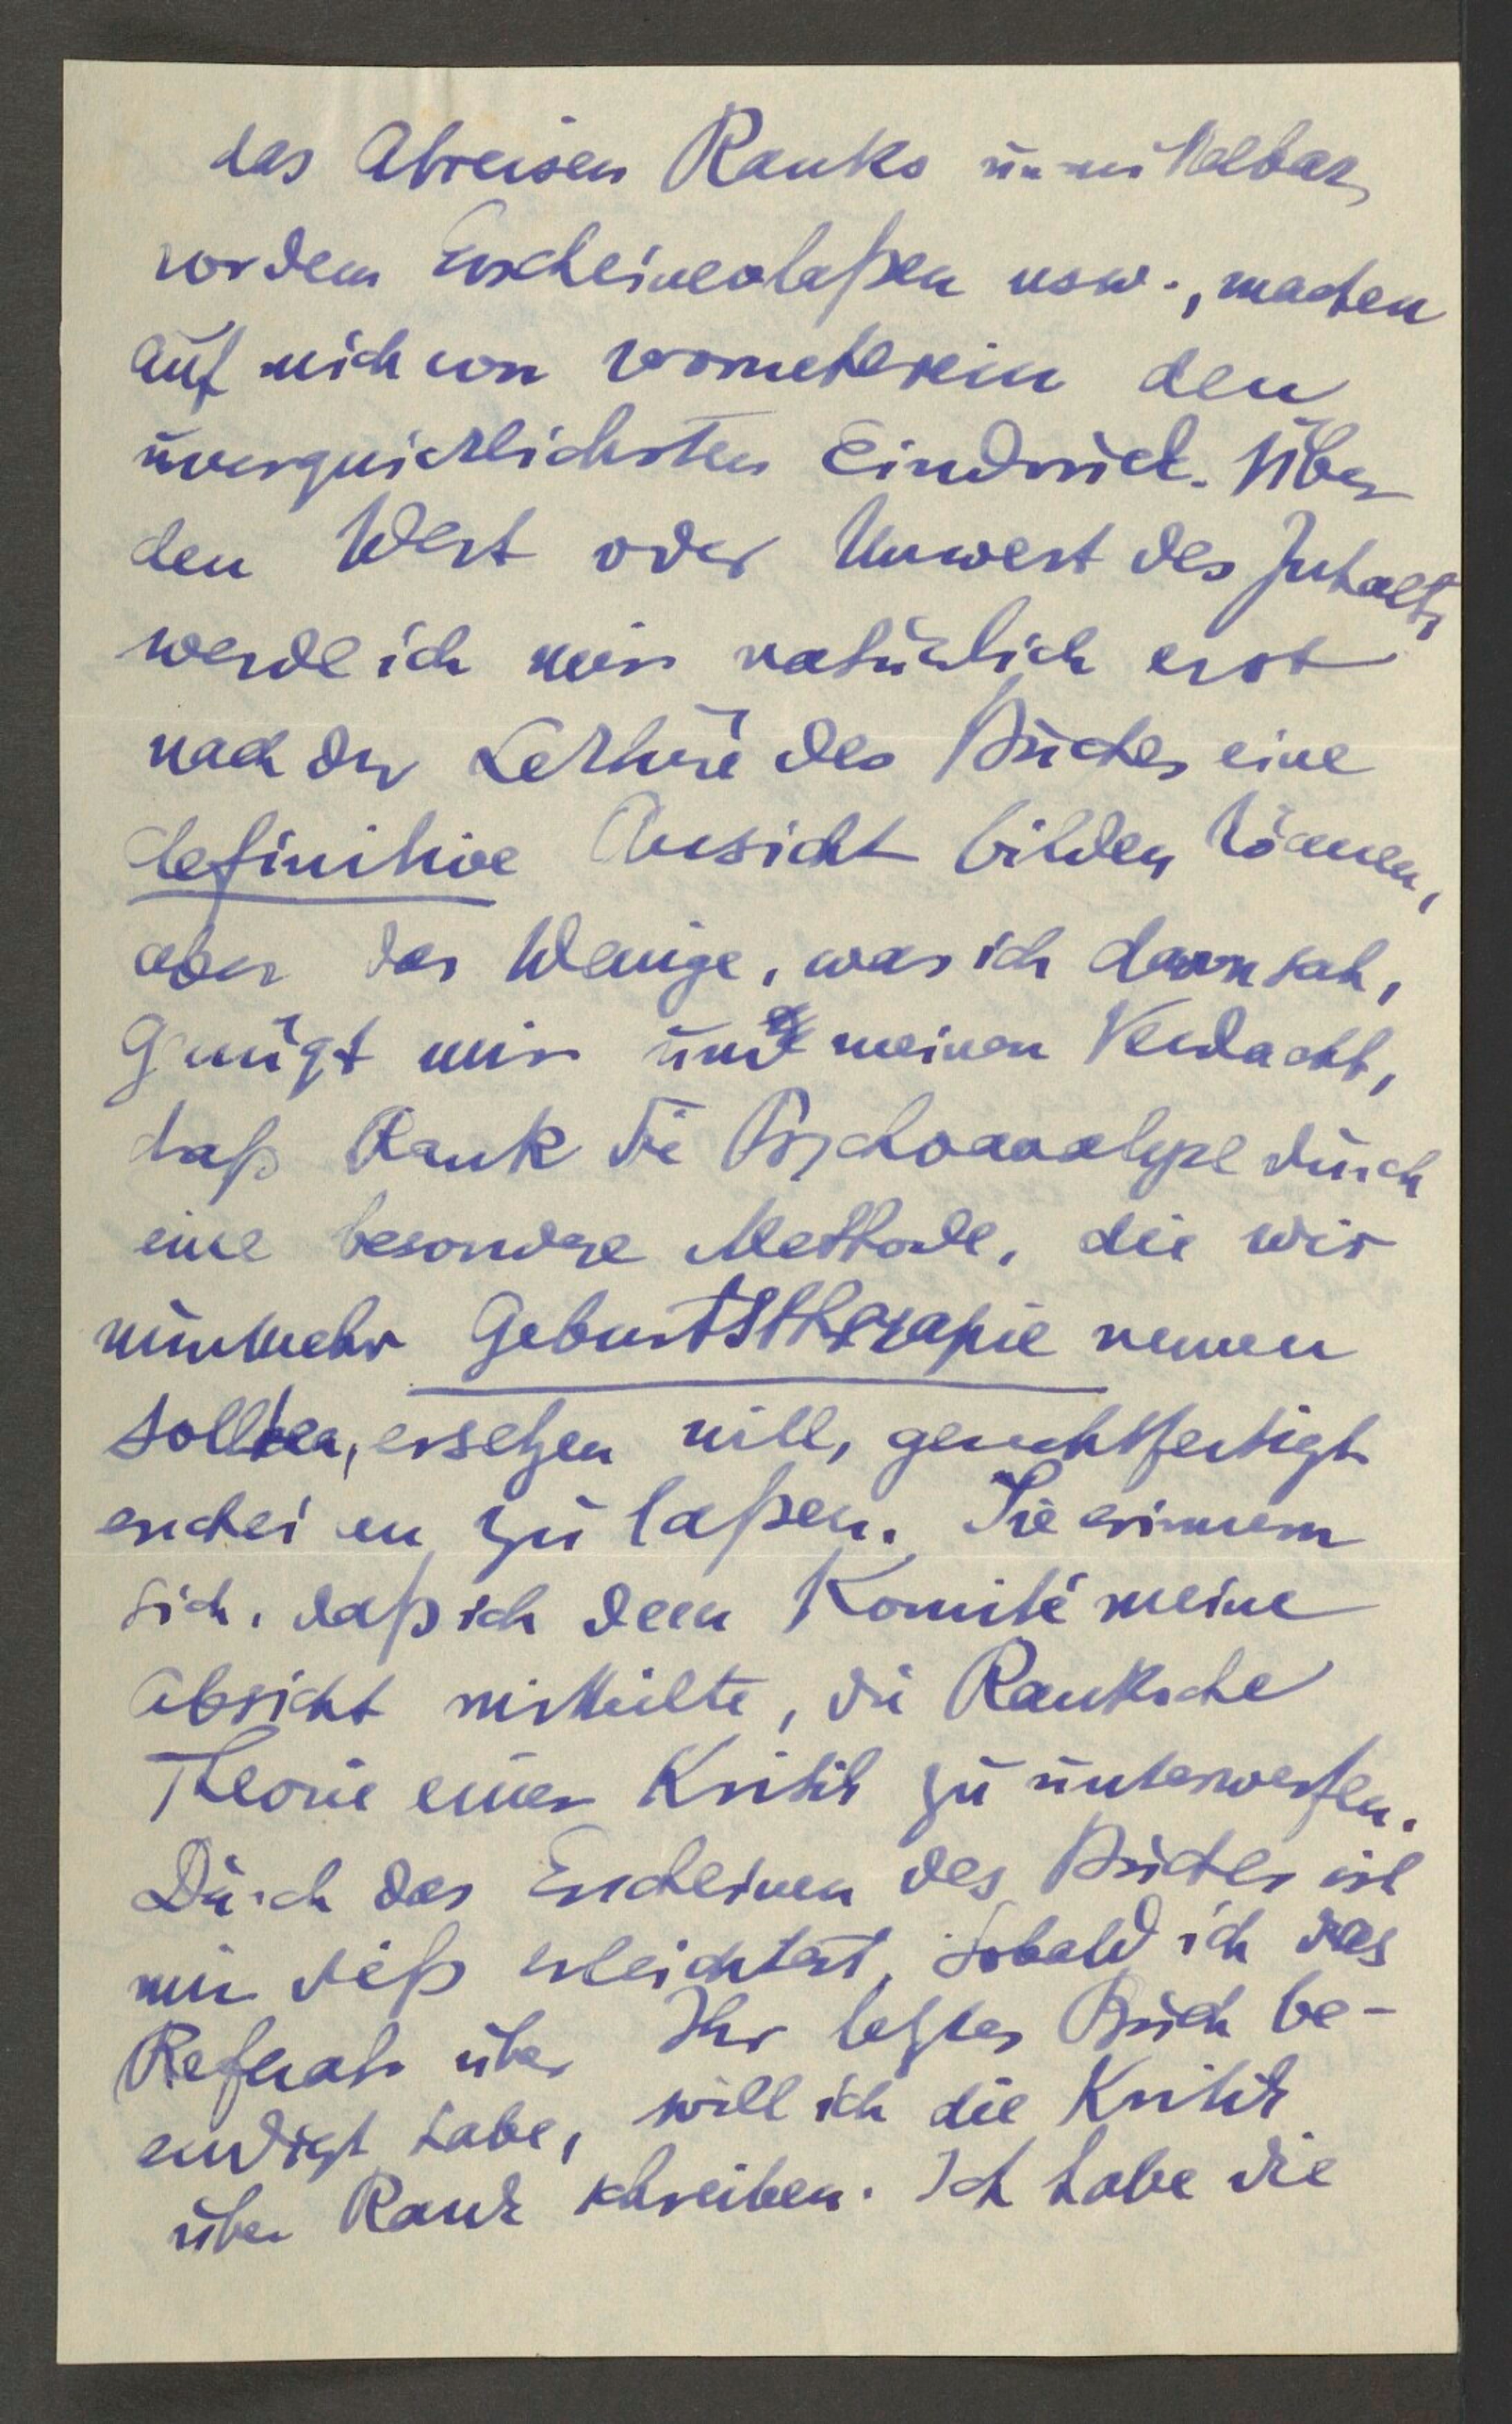 das Abreisen Ranks unmittelbar
vor dem Erscheinenlaßen usw., machen
auf mich von vorneherein den
unerquicklichsten Eindruck. Über
den Wert oder Unwert des Inhalts
werde ich mir natürlich erst
nach der Lektüre des Buches eine
definitive Ansicht bilden können,
aber das Wenige, was ich davon sah,
genügt mir um meinen Verdacht,
daß Rank die Psychoanalyse durch
eine besondere Methode, die wir
nunmehr Geburtstherapie nennen
sollten, ersetzen will, gerechtfertigt
erscheinen zu laßen. Sie erinnern
sich, daß ich dem Komité meine
Absicht mitteilte, die Ranksche
Theorie einer Kritik zu unterwerfen.
Durch das Erscheinen des Buches ist
mir dieß erleichtert, Sobald ich das
Referat über Ihr letztes Buch be-
endigt habe, will ich die Kritik
über Rank schreiben. Ich habe die